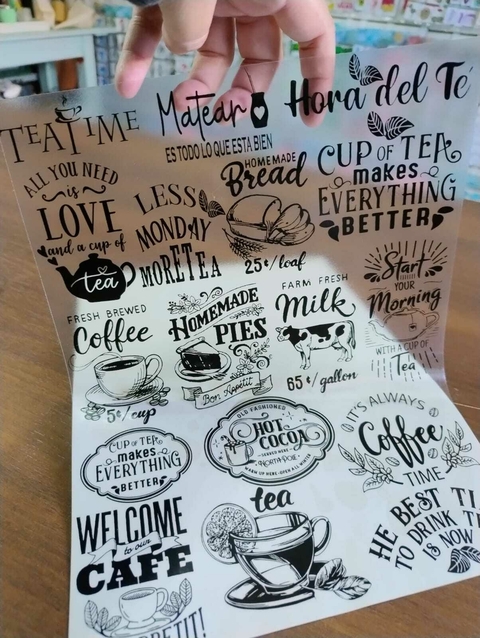 TEATIME
Matear
Hora del Té
ES TODO LO QUE ESTA BIEN
ALL YOU NEED
is
LOVE
and a cup of
tea
LESS
MONDAY
MORE TEA
HOMEMADE
Bread
25¢/loaf
CUP OF TEA
makes
EVERYTHING
BETTER
FRESH BREWED
Coffee
5¢/cup
HOMEMADE
PIES
Bon Appetit
FARM FRESH
Milk
65¢/gallon
Start
YOUR
Morning
WITH A CUP OF
Tea
CUP OF TEA
makes
EVERYTHING
BETTER
OLD FASHIONED
HOT
COCOA
SERVED HERE
NORTH POLE
WARM UP HERE • OPEN ALL WINTER
IT'S ALWAYS
Coffee
TIME
WELCOME
to our
CAFE
PETIT!
tea
HE BEST TI
TO DRINK T
IS NOW